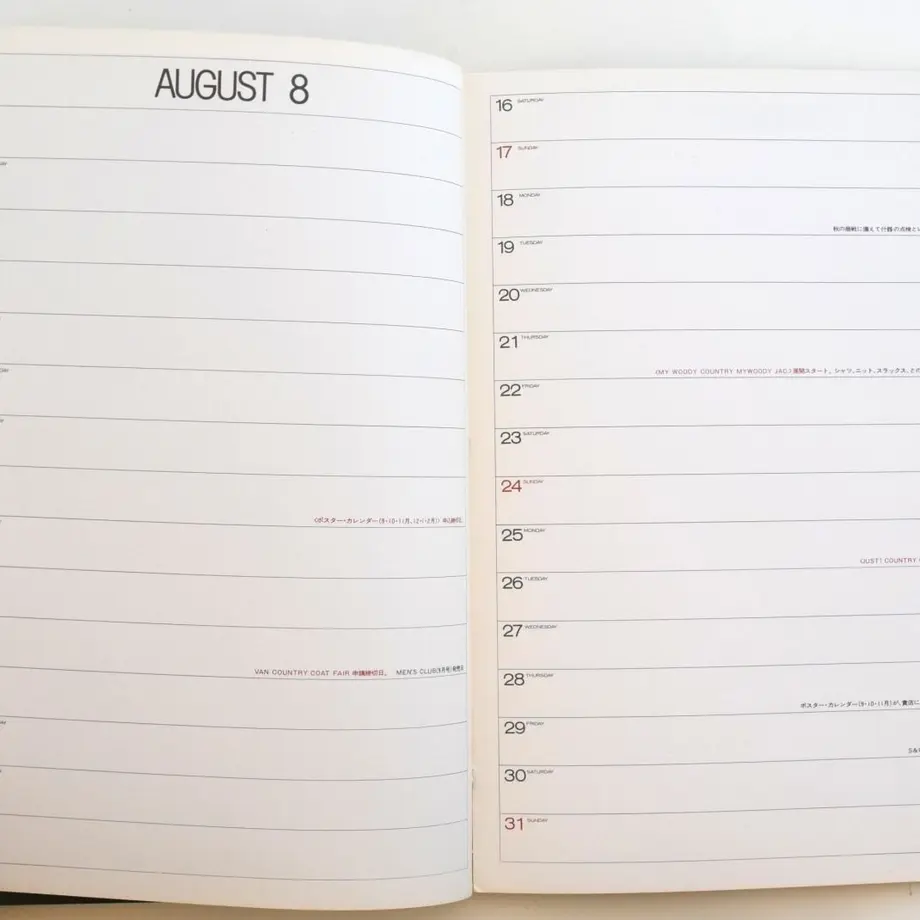 AUGUST 8
〈ポスター・カレンダー(9・10・11月、12・1・2月)〉
VAN COUNTRY COAT FAIR 申請締切日。 MEN'S CLUB
16 SATURDAY
17 SUNDAY
18 MONDAY
秋の商戦に備えて什器の点検
19 TUESDAY
20 WEDNESDAY
21 THURSDAY
〈MY WOODY COUNTRY MYWOODY JAC.〉展開スタート。シャツ、ニット、スラックス、との
22 FRIDAY
23 SATURDAY
24 SUNDAY
25 MONDAY
〈JUST! COUNTRY
26 TUESDAY
27 WEDNESDAY
28 THURSDAY
ポスター・カレンダー(9・10・11月)が、貴店に
29 FRIDAY
30 SATURDAY
31 SUNDAY